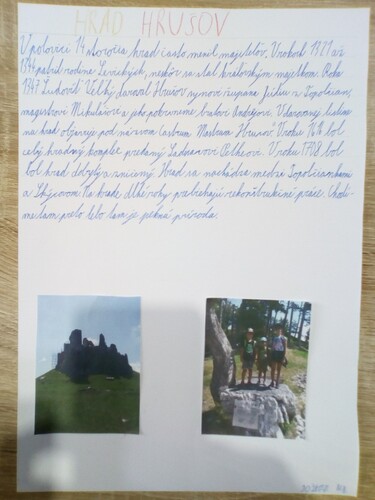 HRAD HRUŠOV
V polovici 14 storočia hrad často menil majiteľov. V rokoch 1321 až
1346 patril rodine Levických, neskôr sa stal kráľovským majetkom. Roku
1347 Ľudovít Veľký daroval Hrušov synovi župana Júliu z Topoľčian,
magistrovi Mikulášovi a jeho bratovi Andrejovi. V darovacej listine
sa hrad objavuje pod názvom Castrum "Hrusov" V roku
celý hradný komplex predaný Ladislavovi V roku 1708 bol
bol hrad dobytý a zničený. Hrad sa nachádza medzi Topoľčiankami
a Skýcovom. Na hrade dlhé roky prebiehajú rekonštrukčné práce. Chodí-
me tam preto lebo tam je pekná príroda.